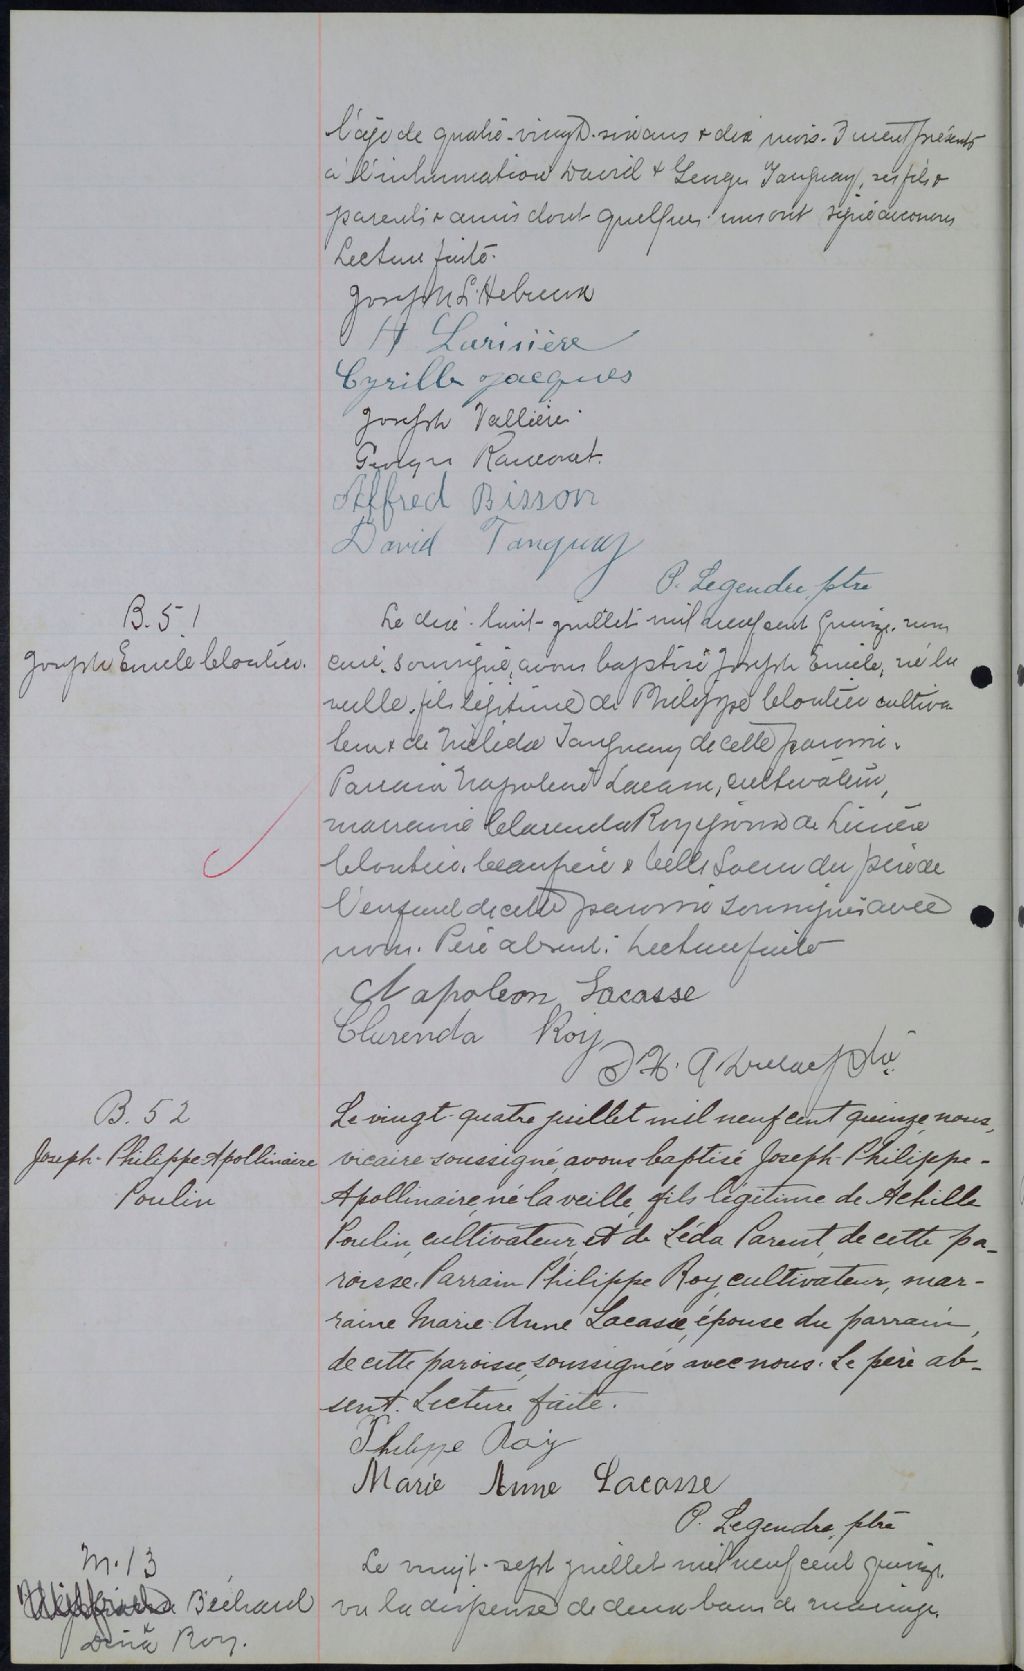 l'âge de quatre-vingt-six ans & dix mois. Furent présents
à l'inhumation David & George Tanguay, ses fils &
parents & amis dont quelques-uns ont signé avec nous
Lecture faite.
Joseph L'Hebreux
H Larivière
Cyrille Jacques
Joseph Vallières
George Rancourt.
Alfred Bisson
David Tanguay
P. Legendre, ptre
B. 51
Joseph Emile Cloutier.
Le dix-huit juillet mil neuf cent quinze, nous
curé, soussigné, avons baptisé Joseph Emile, né la
veille, fils légitime de Philippe Cloutier cultiva
teur & de Tanguay de cette paroisse.
Parrain Napoléon Lacasse, cultivateur,
marraine Clarenda Roy épouse de
Cloutier, beau frère & belle soeur du père de
l'enfant de cette paroisse soussignés avec
nous. Père absent. Lecture faite
Napoleon Lacasse
Clarenda Roy
ptre
B. 52
Joseph-Philippe-Apollinaire
Poulin
Le vingt-quatre juillet mil neuf cent quinze, nous,
vicaire soussigné, avons baptisé Joseph-Philippe-
Apollinaire, né la veille, fils légitime de Achille
Poulin, cultivateur, et de Léda Parent, de cette pa-
roisse. Parrain Philippe Roy, cultivateur, mar-
raine Marie-Anne Lacasse, épouse du parrain,
de cette paroisse, soussignés avec nous. Le père ab-
sent. Lecture faite.
Philippe Roy
Marie Anne Lacasse
P. Legendre, ptre
M. 13
Béchard
Dina Roy.
Le vingt-sept juillet mil neuf cent quinze,
vu la dispense de deux bans de mariage,